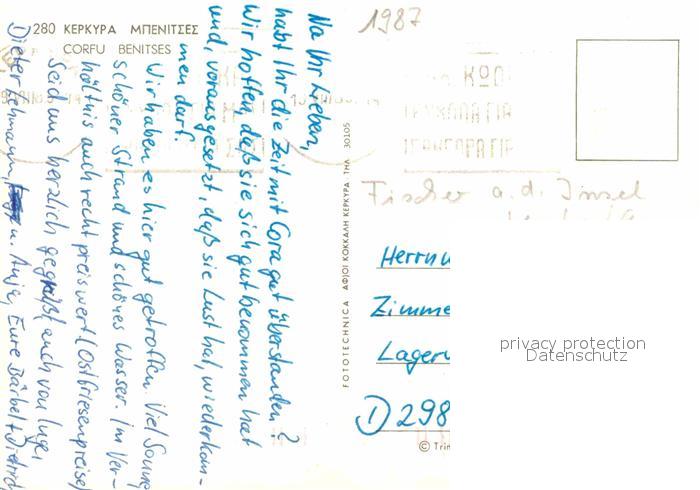 280 ΚΕΡΚΥΡΑ ΜΠΕΝΙΤΣΕΣ
CORFU BENITSES
Na Ihr Lieben,
habt Ihr die Zeit mit Cora gut überstanden?
Wir hoffen, daß sie sich gut benommen hat
und, vorausgesetzt, daß sie Lust hat, wiederkom-
men darf.
Wir haben es hier gut getroffen. Viel Sonne,
schöner Strand und schönes Wasser. Im Ver-
hältnis auch recht preiswert (Ostfriesenpreise)
Seid uns herzlich gegrüßt auch von Inge,
Dieter u. Anja, Eure Bärbel + Dietrich
1987
FOTOTECHNICA ΑΦ|ΟΙ ΚΟΚΚΑΛΗ ΚΕΡΚΥΡΑ ΤΗΛ 30105
Fischer a. d. Insel
Herrn u
Zimme
Lager
D 298
© Trim
privacy protection
Datenschutz